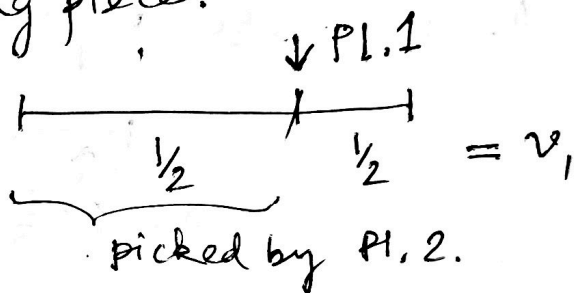 g piece.
↓ Pl. 1
1/2 1/2 = v₁
picked by Pl. 2.